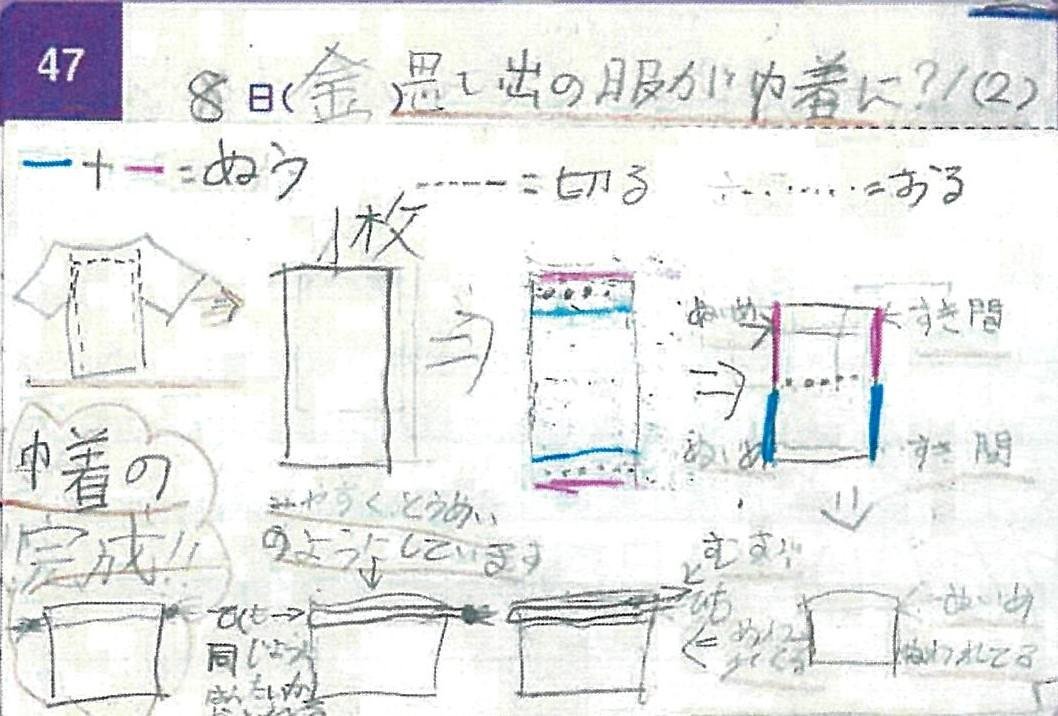 47
8日(金)思い出の服が巾着に?!(2)
＋ =ぬう ------=切る ········=おる
1枚
ぬいめ すき間
ぬいめ すき間
巾着の
完成!!
みやすくとうめい
のようにしています
むすぶ
ひも
ぬいめ
ぬわれてる
同じように